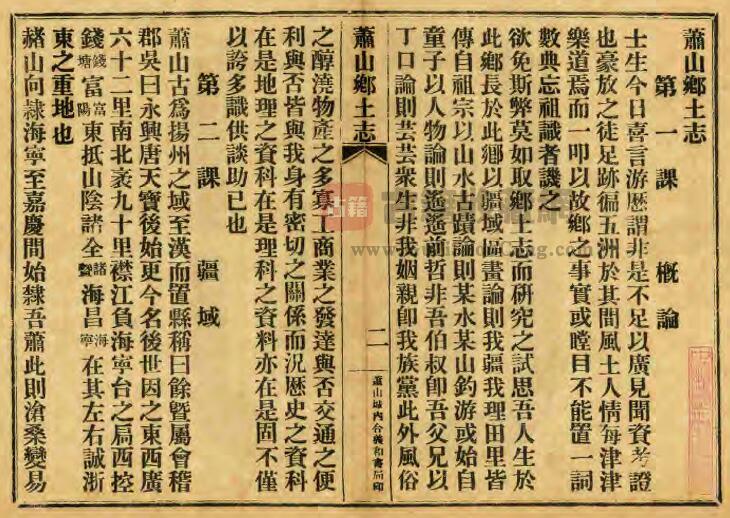 蕭山鄉土志
第一課 概論
士生今日喜言游歷謂非是不足以廣見聞資考證
也豪放之徒足跡徧五洲於其間風土人情每津津
樂道焉而一叩以故鄉之事實或瞠目不能置一詞
數典忘祖識者譏之
欲免斯弊莫如取鄉土志而研究之試思吾人生於
此鄉長於此鄉以疆域區畫論則我疆我理田里皆
傳自祖宗以山水古蹟論則某水某山釣游或始自
童子以人物論則遙遙前哲非吾伯叔卽吾父兄以
丁口論則芸芸衆生非我姻親卽我族黨此外風俗
蕭山鄉土志
二
蕭山城內合義和書局印
之醇澆物產之多寡工商業之發達與否交通之便
利與否皆與我身有密切之關係而況歷史之資料
在是地理之資料在是理科之資料亦在是固不僅
以誇多識供談助已也
第二課 疆域
蕭山古爲揚州之域至漢而置縣稱曰餘曁屬會稽
郡吳曰永興唐天寶後始更今名後世因之東西廣
六十二里南北袤九十里襟江負海寧台之扃西控
錢錢塘富富陽東抵山陰諸全諸曁海昌海寧在其左右誠浙
東之重地也
赭山向隸海寧至嘉慶間始隸吾蕭此則滄桑變易
古籍